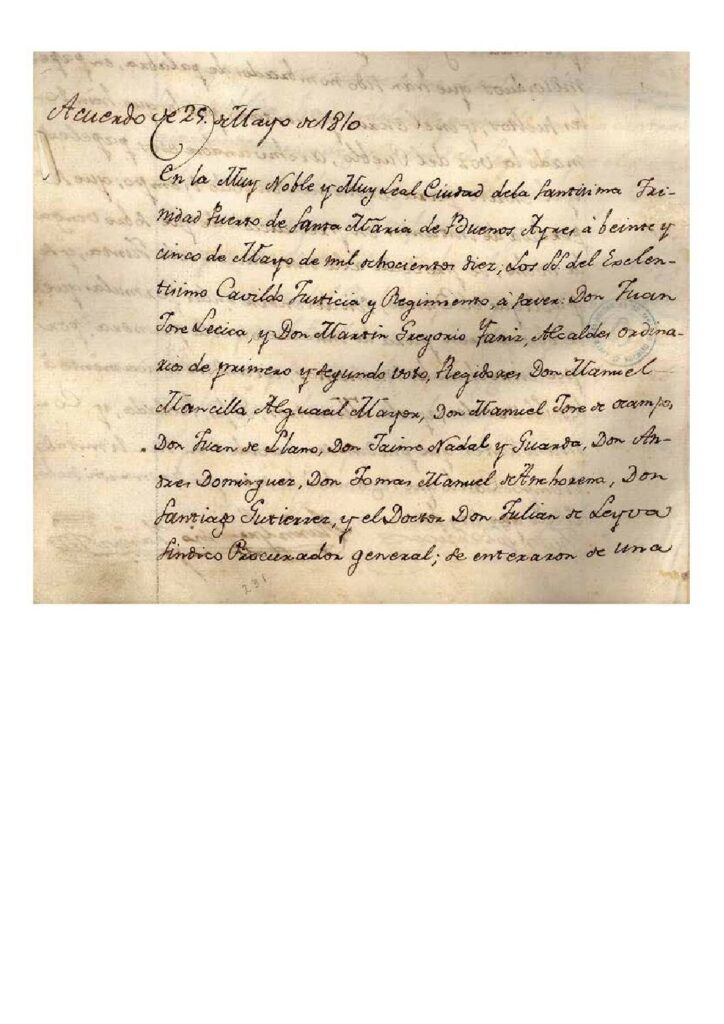 Acuerdo de 25. de Mayo de 1810
En la Muy Noble y Muy Leal Ciudad dela Santisima Tri-
nidad Puerto de Santa Maria de Buenos Ayres à beinte y
cinco de Mayo de mil ochocientos diez; Los SS. del Exelen-
tisimo Cavildo Justicia y Regimiento, à saver: Don Juan
Jose Lecica, y Don Martin Gregorio Yaniz, Alcaldes ordina-
rios de primero y segundo voto, Regidores Don Manuel
Mancilla Alguacil Mayor, Don Manuel Jose de Ocampo,
Don Juan de Llano, Don Jaime Nadal y Guarda, Don An-
dres Dominguez, Don Tomas Manuel de Anchorena, Don
Santiago Gutierrez, y el Doctor Don Julian de Leyva
Sindico Procurador general; se enteraron de una
231